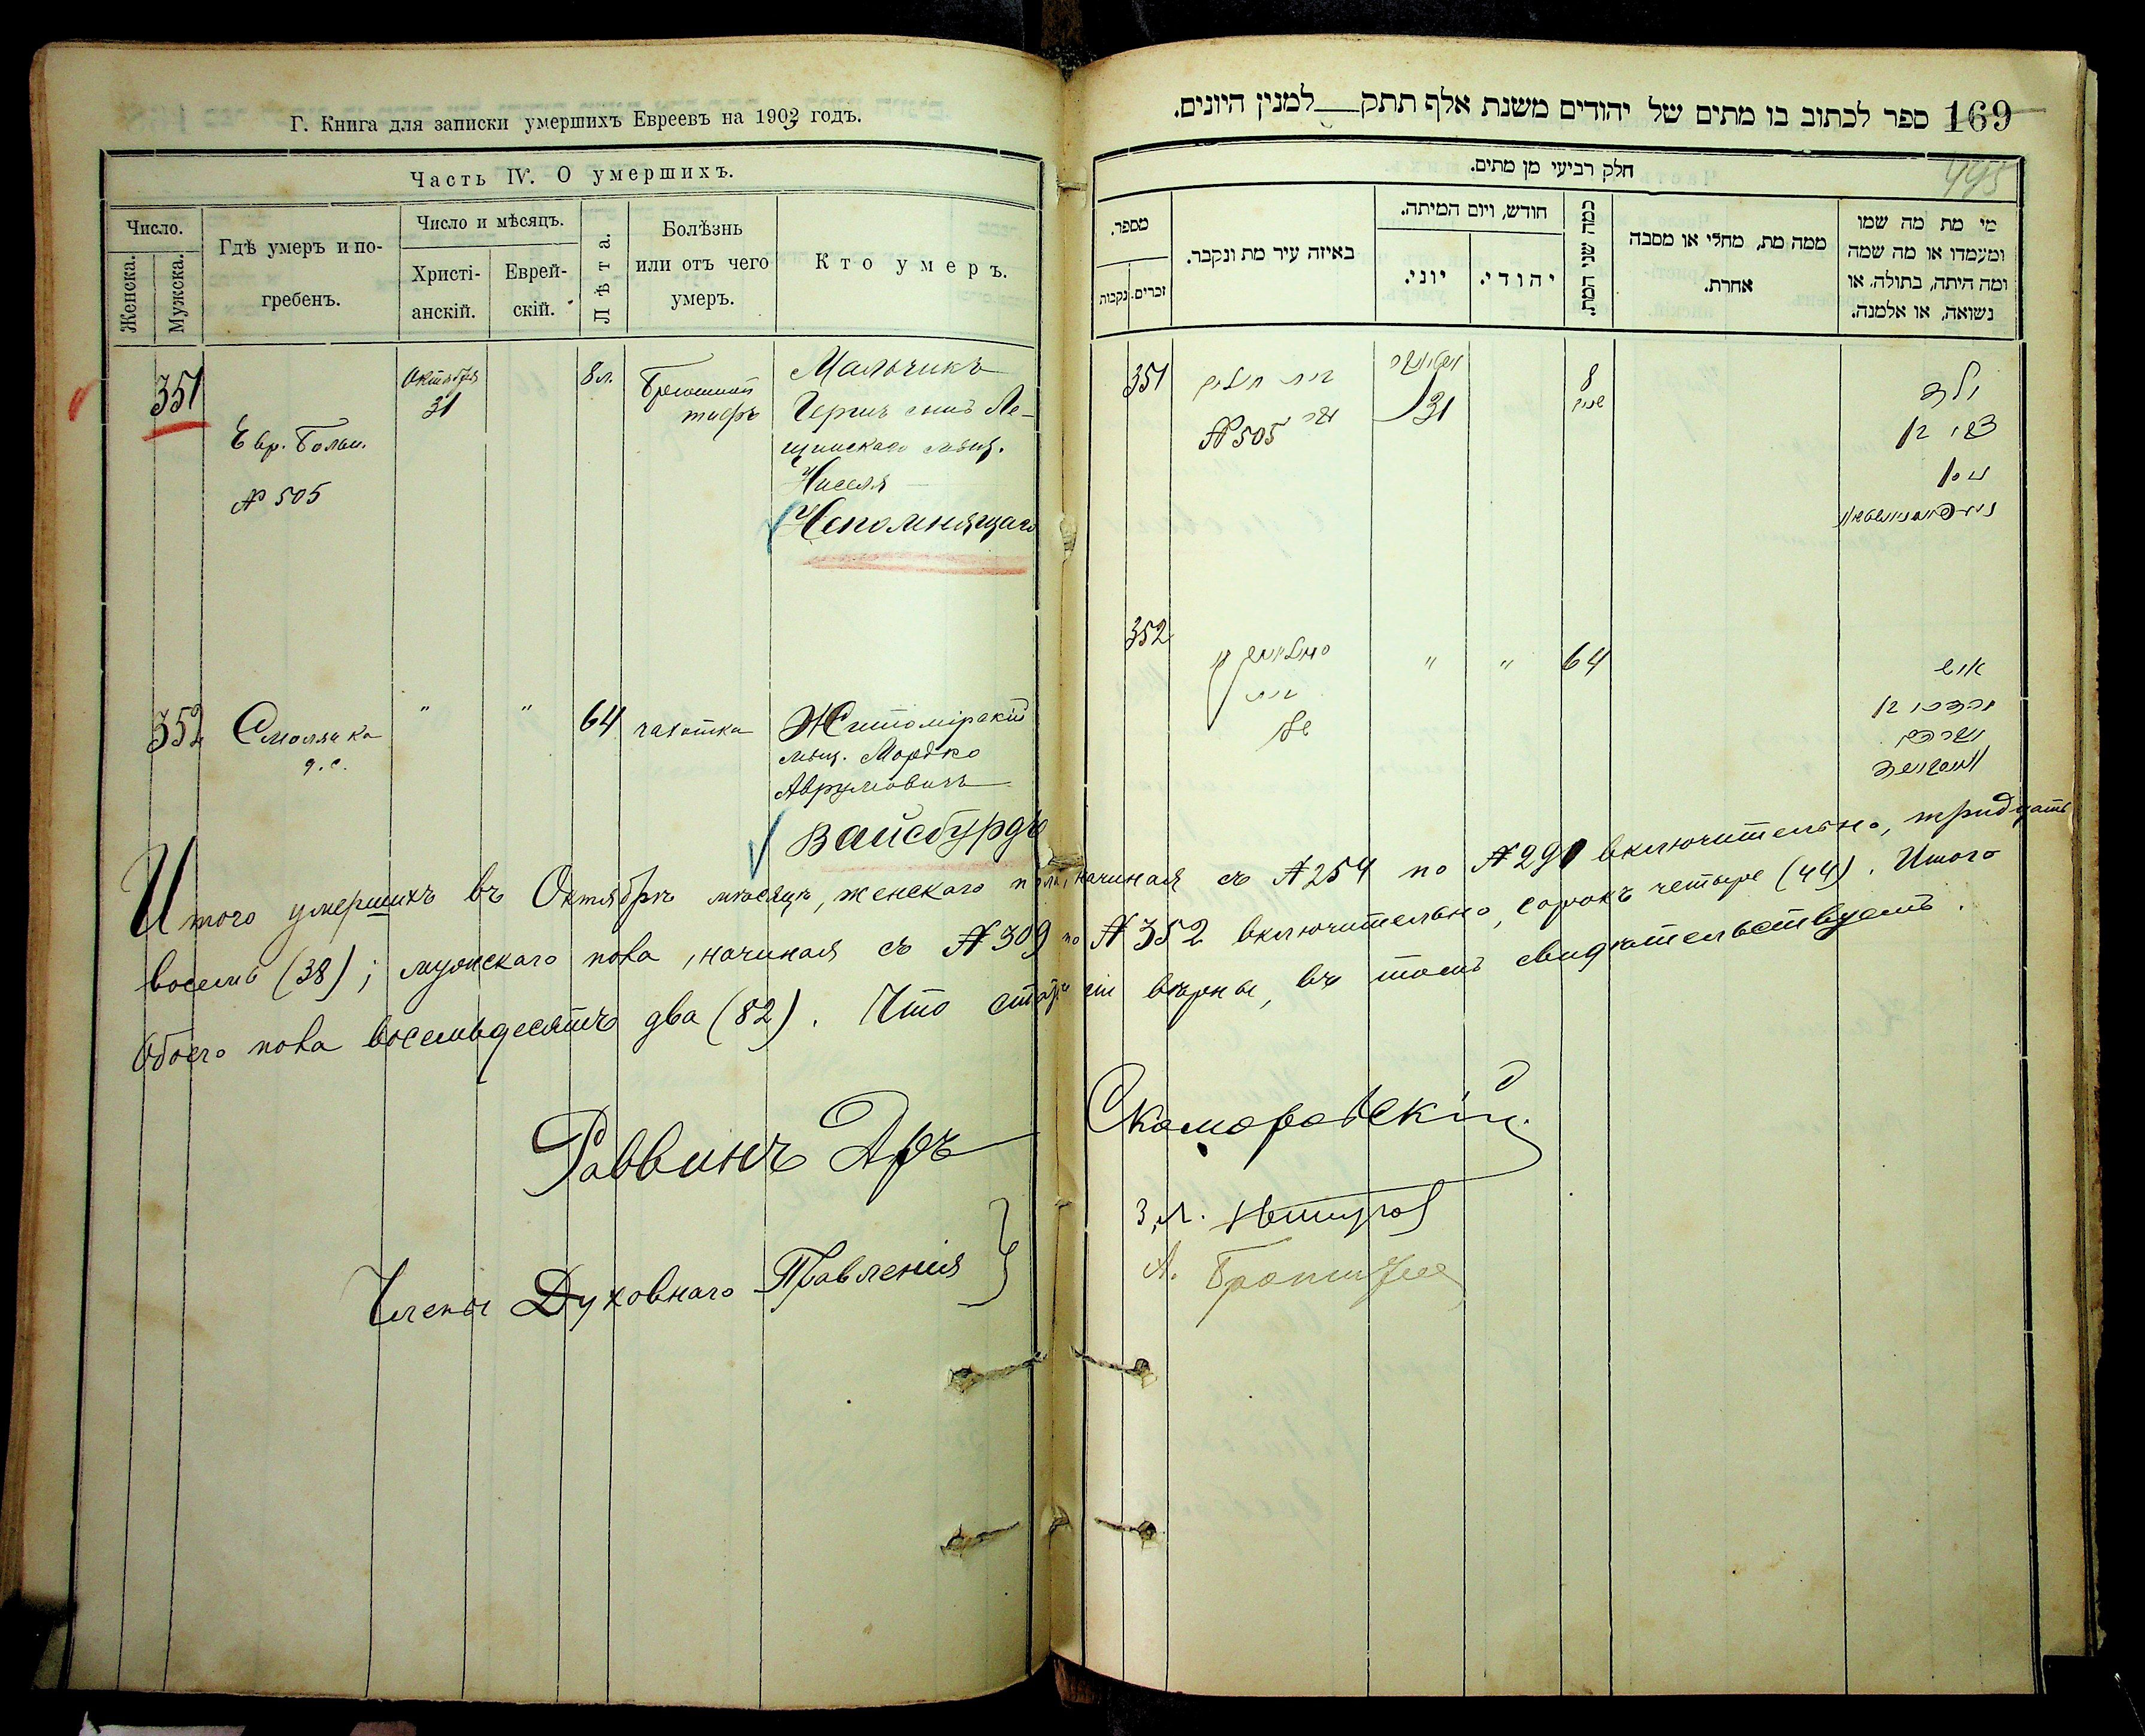 Г. Книга для записки умершихъ Евреевъ на 1903 годъ.
Часть IV. О умершихъ.
Число.
Женска.
Мужска.
Гдѣ умеръ и по-
гребенъ.
Число и мѣсяцъ.
Христі-
анскій.
Еврей-
скій.
Лѣта.
Болѣзнь
или отъ чего
умеръ.
Кто умеръ.
351
Евр. Больн.
№ 505
Октября
31
8 л.
Брюшной
тифъ
Мальчикъ
Герш сынъ Ле-
щинскаго мѣщ.
Ниселя
Непомнящаго
352
Смолянка
д. с.
" "
64
чахотка
Житомірскій
мѣщ. Мордко
Аврумовичъ
Вайсбурдъ
169 ספר לכתוב בו מתים של יהודים משנת אלף תתק למנין היונים.
445
חלק רביעי מן מתים.
מספר.
זכרים.
נקבות
באיזה עיר מת ונקבר.
חודש, ויום המיתה.
יוני.
יהודי.
כמה שני המת.
ממה מת, מחלי או מסבה
אחרת.
מי מת מה שמו
ומעמדו או מה שמה
ומה היתה, בתולה, או
נשואה, או אלמנה.
351
בית חולים
№ 505
31
8
שנים
ילד
352
" "
64
איש
Итого умершихъ въ Октябрѣ мѣсяцѣ, женскаго пола, начиная съ № 254 по № 291 включительно, тридцать
восемь (38); мужскаго пола, начиная съ № 309 по № 352 включительно, сорокъ четыре (44). Итого
обоего пола восемьдесятъ два (82). Что статьи сіи вѣрны, въ томъ свидѣтельствуемъ.
Раввинъ Д-ръ Скоморовскій.
Члены Духовнаго Правленія }
З. М.
А.